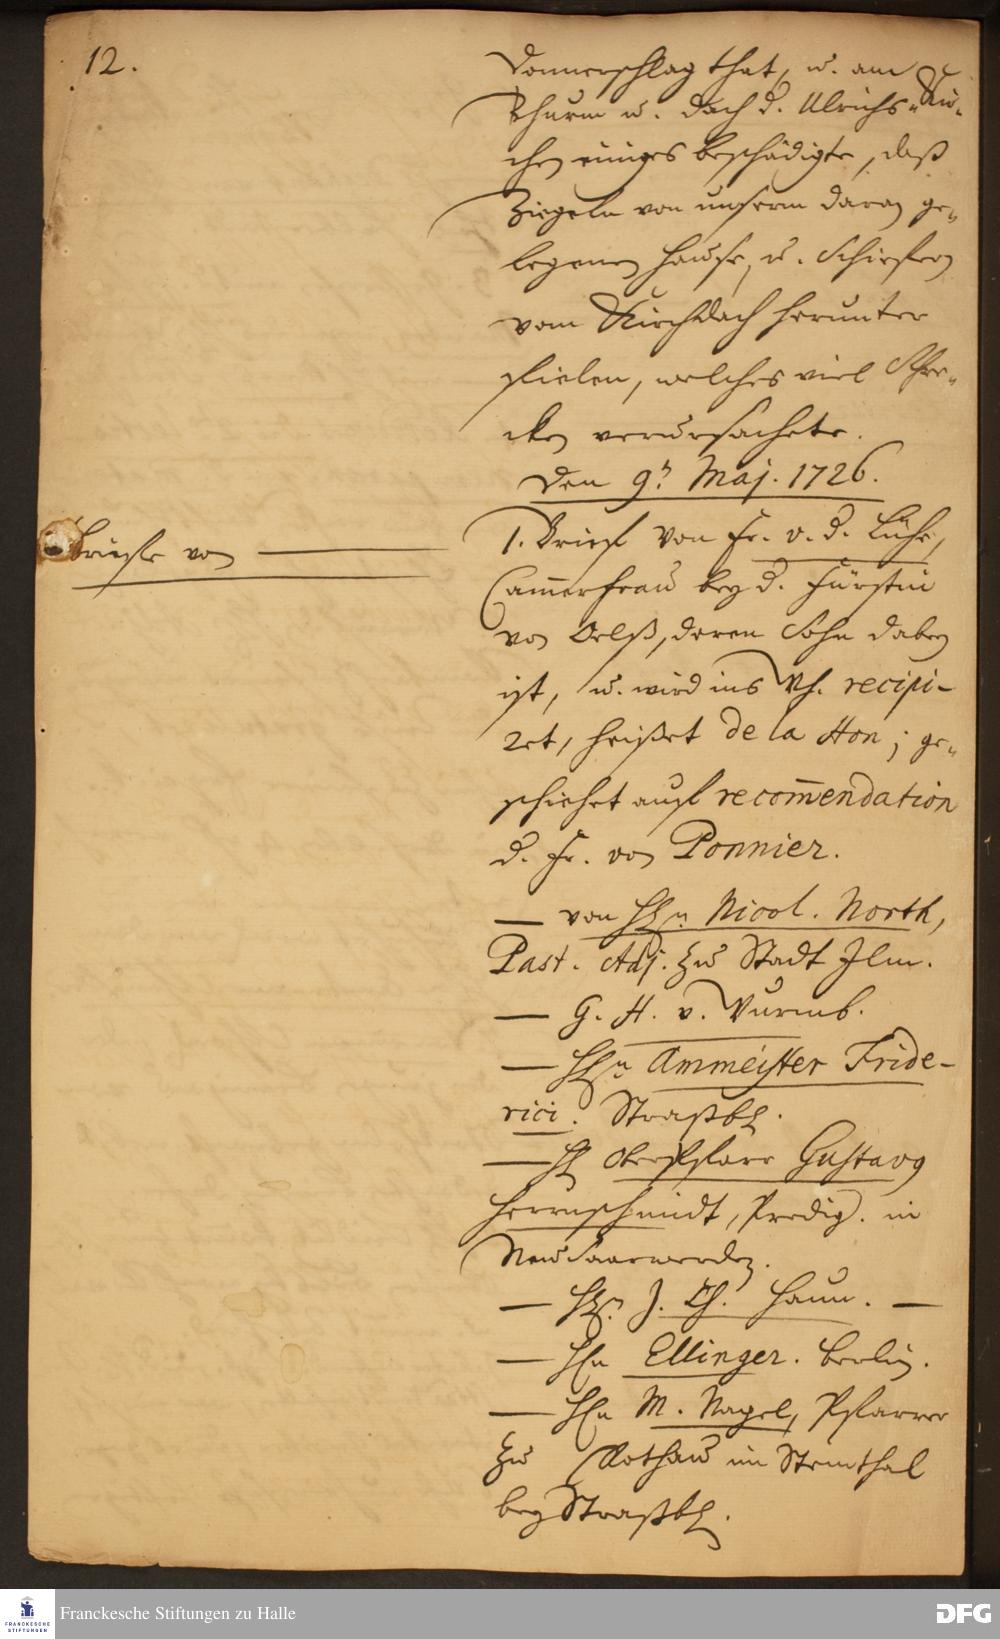 12.
Donnerschlag that, u. am
Thurm u. Dach d. Ulrichs-Kir-
chen einiges beschädigte, daß
Ziegeln von unserm daran ge-
legenen Hause, u. Schiefern
vom Kirchdach herunter
fielen, welches viel Schre-
cken verursachete.
Den 9t. Maj. 1726.
Briefe von
1. Brief von Fr. v. d. Lühe,
Cammerfrau bey d. Fürstin
von Oelß, deren Sohn dabey
ist, u. wird ins Wh. recipi-
ret, heißet de la Hon; ge-
schiehet auf recom̄endation
d. Fr. von Ponnier.
— von HEn. Nicol. North,
Past. Adj. zu Stadt Ilm.
— G. H. v. Wurmb.
— HEn. Ammeister Fride-
rici. Straßb.
— H Oberpfarr Gustavg
Herrnschmidt, Predig. in
NeuSaarwerden.
— HEn. J. Ch. Haun. —
— HEn Ellinger. Berlin.
— HEn M. Nagel, Pfarrer
zu Rothau im Steinthal
bey Straßb.
FRANCKESCHE STIFTUNGEN
Franckesche Stiftungen zu Halle
DFG